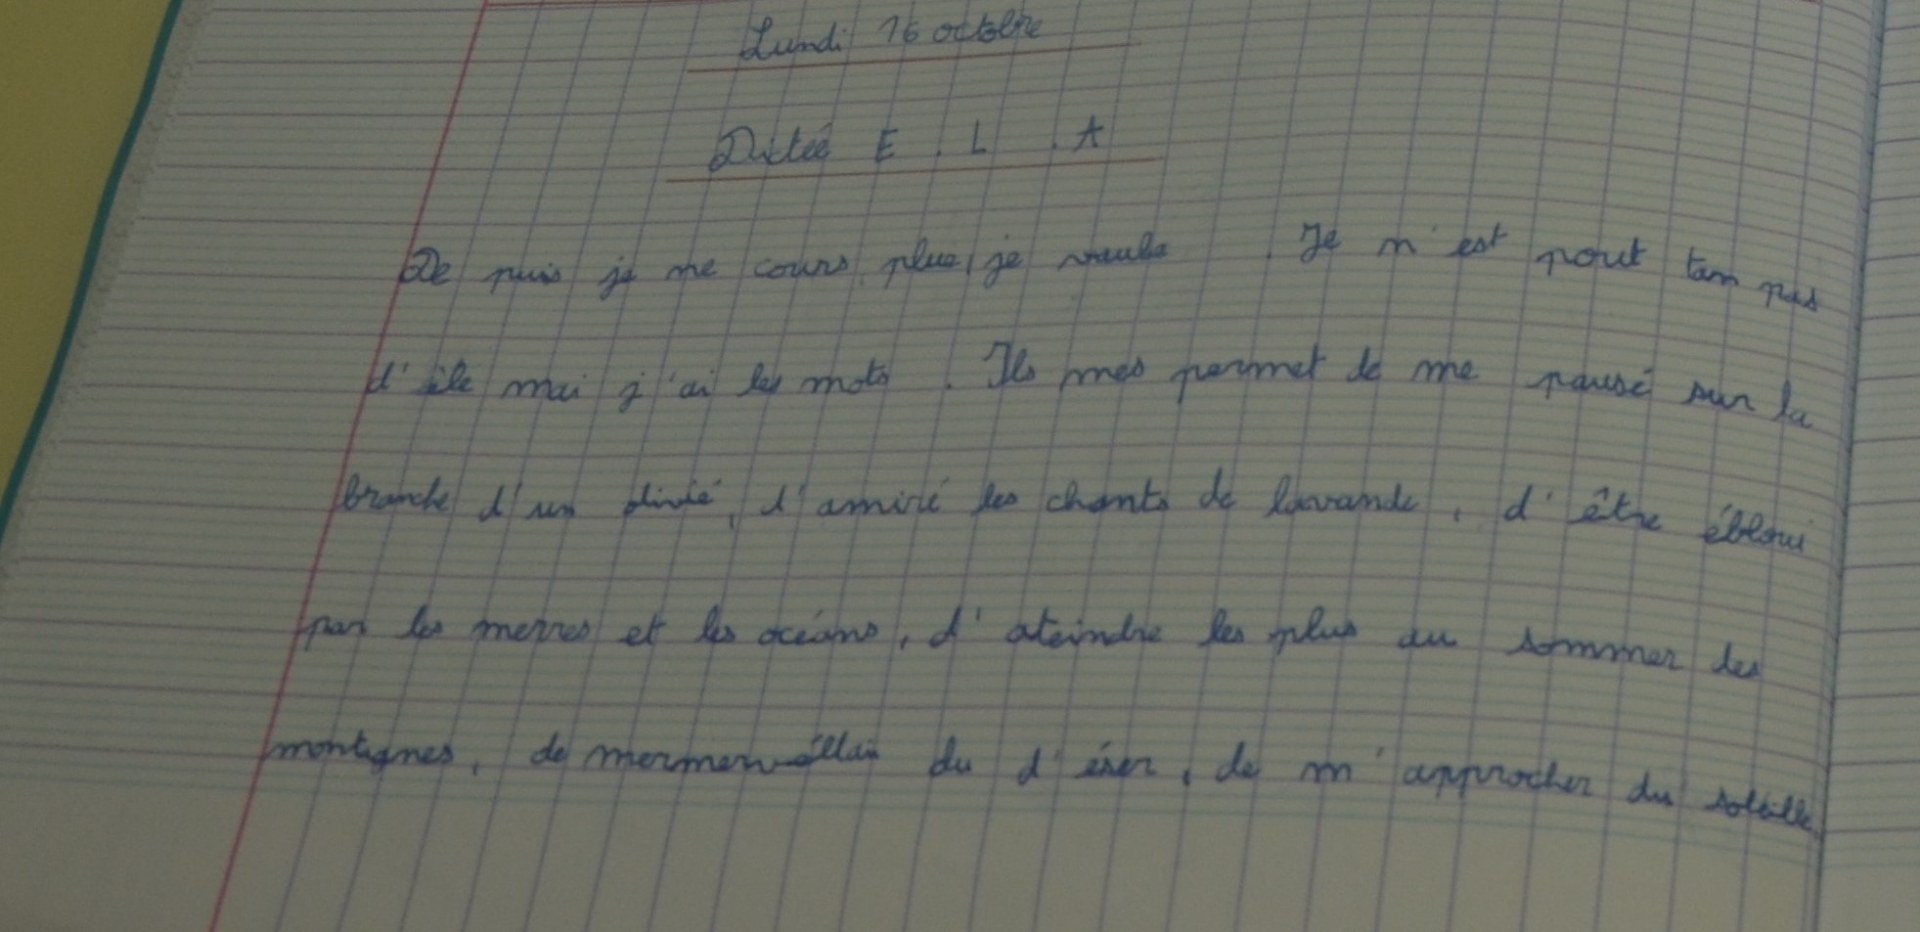 Lundi 16 octobre
Dictée E . L . A
De puis je me cours plus, je voule . Je n'est pout tam pas
d'île mai j'ai les mots . Ils mes permet de me pausé sur la
branche d'un olivié, d'amiré les chants de lavande, d'être ébloui
par les merres et les océans, d'ateindre les plus au sommer des
montagnes, de du d'éser, de m'approcher du soleille